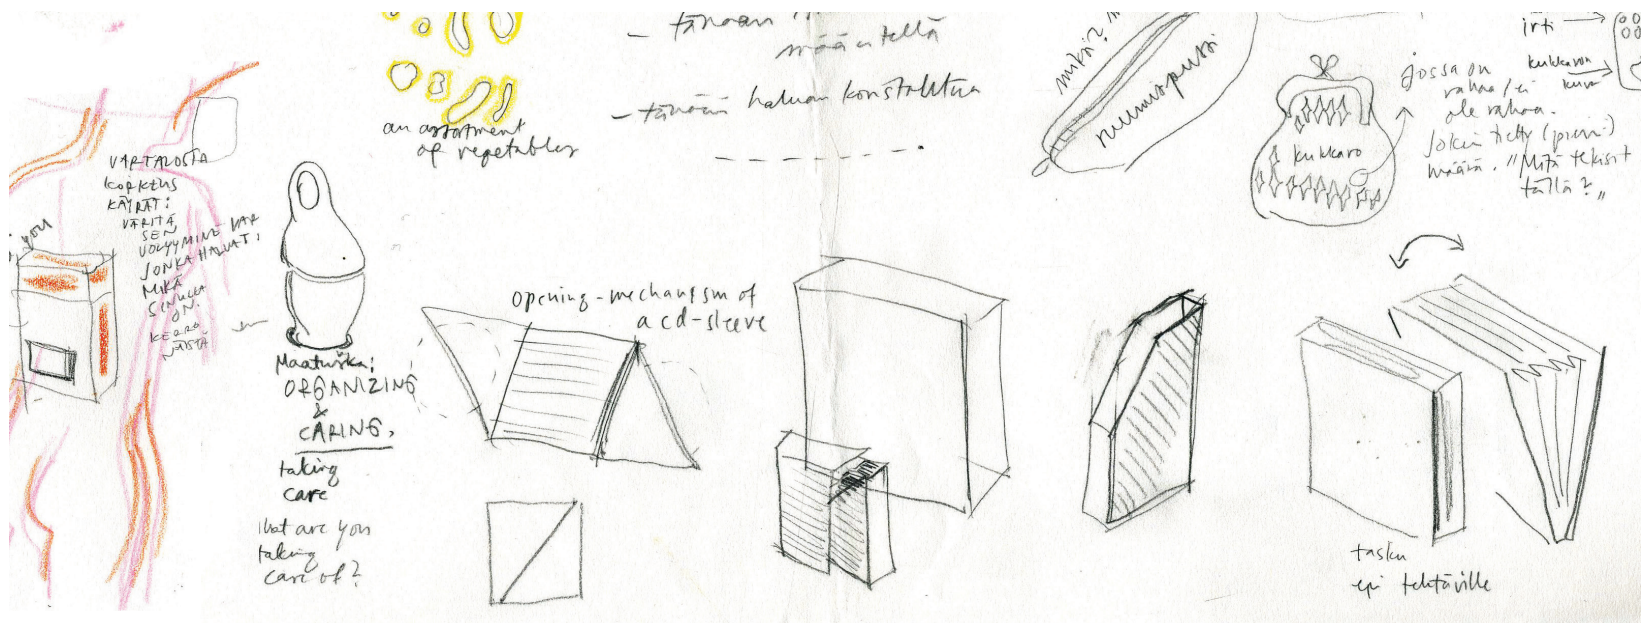 you
VARTALOSTA
KORKEUS
KÄYRÄT:
VÄRITÄ
SEN
VOLYYMINE VAR
JONKA HALUAT:
MIKÄ
SINULLA
ON.
KERRO
NÄISTÄ
an assortment
of vegetables
Maatuška:
ORGANIZING
&
CARING,
taking
care
What are you
taking
care of?
– tänään
määritellä
– tänään haluan konstaltua
opening-mechanism of
a cd-sleeve
mikä?
ruumispussi
kukkaro
jossa on
rahaa / ei
ole rahaa.
Jokin tietty (pieni)
määrä. "Mitä tekisit
tällä?"
irti
kukkaron
kuva
tasku
epi tehtäville